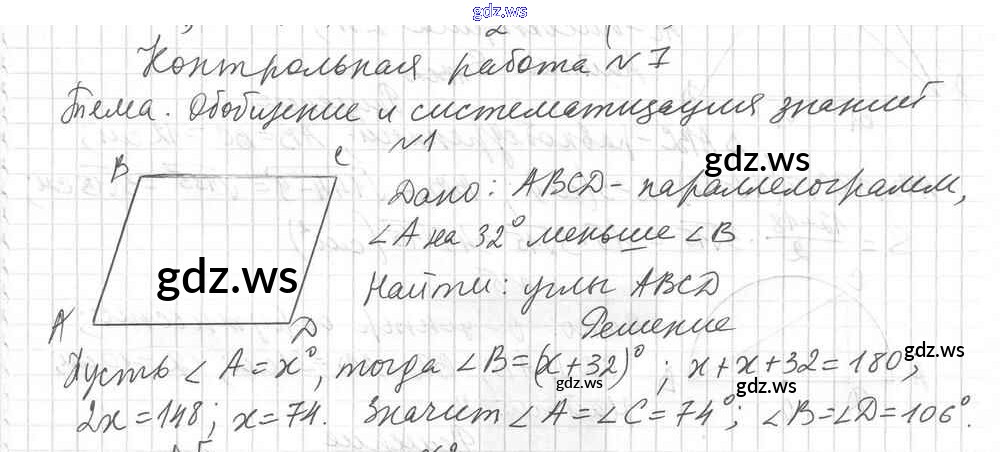 gdz.ws
Контрольная работа №7
Тема. Обобщение и систематизация знаний
№1
B
C
A
D
Дано: ABCD - параллелограмм,
∠A на 32° меньше ∠B
Найти: углы ABCD
Решение
Пусть ∠A = x°, тогда ∠B = (x+32)°; x+x+32=180;
2x=148; x=74. Значит ∠A=∠C=74°; ∠B=∠D=106°.
gdz.ws
gdz.ws
gdz.ws
gdz.ws
gdz.ws
gdz.ws
gdz.ws